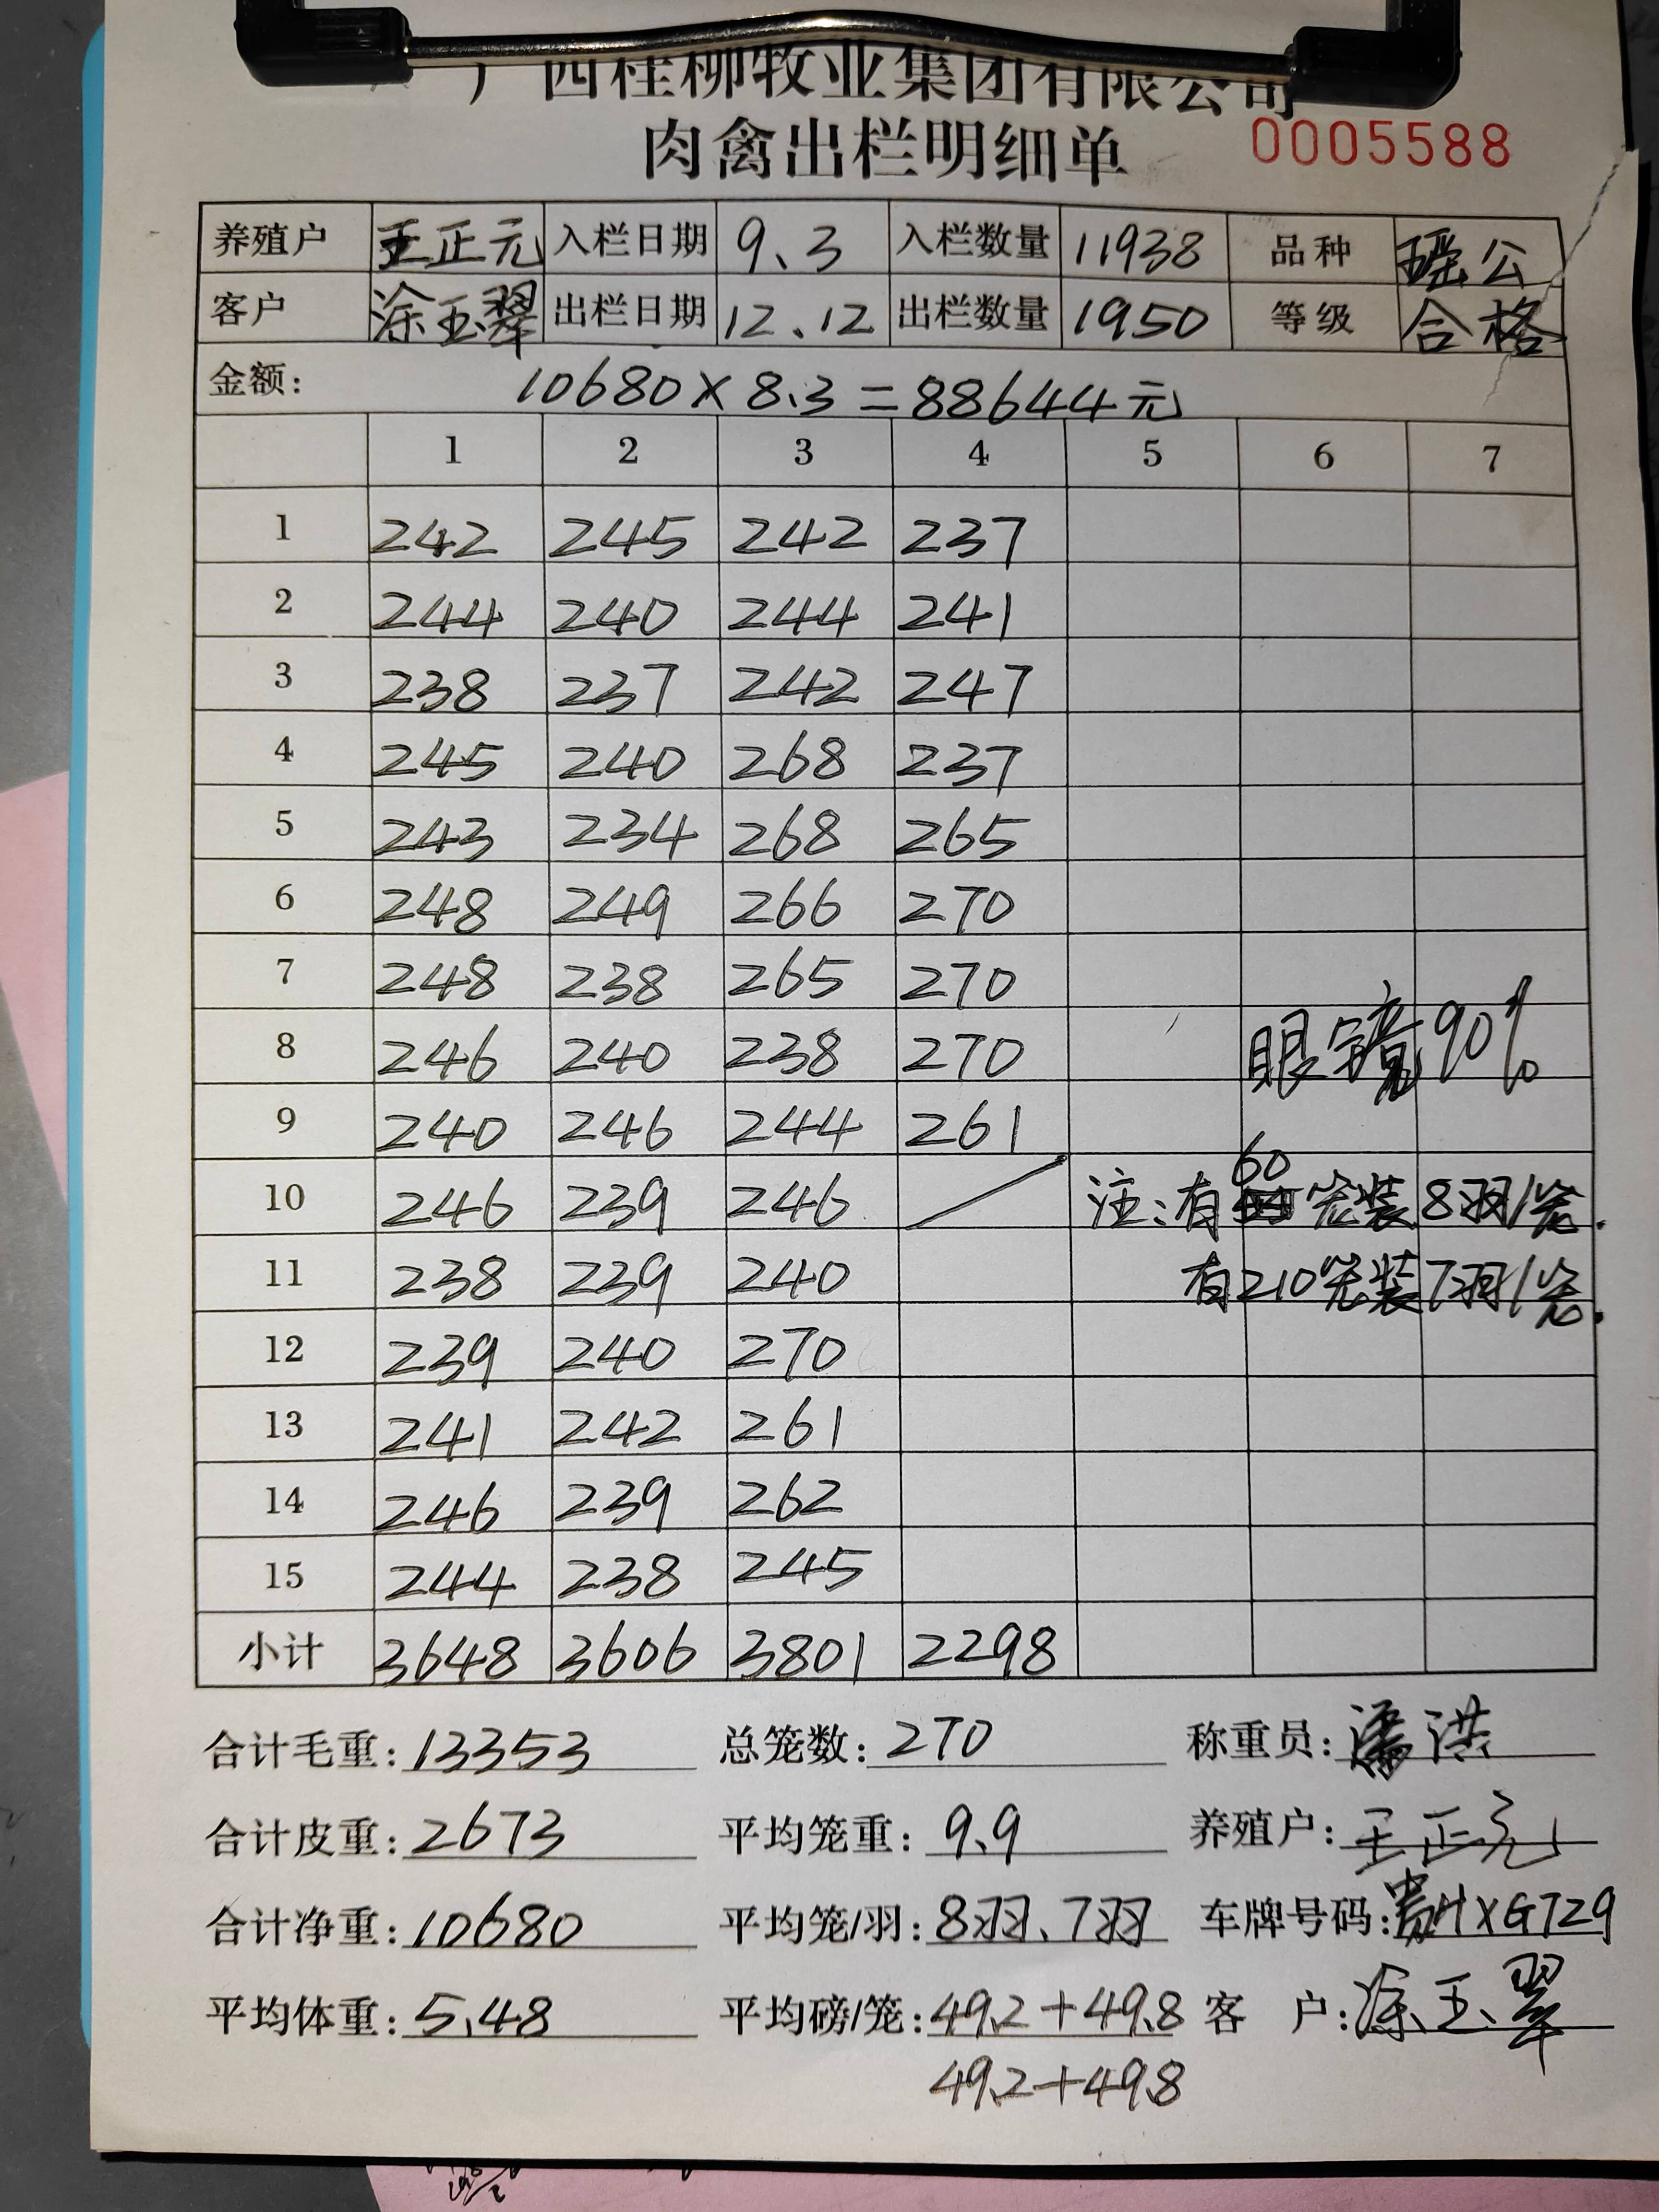 广西桂柳牧业集团有限公司
肉禽出栏明细单 0005588
养殖户 王正元 入栏日期 9.3 入栏数量 11938 品种 瑶公
客户 涂玉翠 出栏日期 12.12 出栏数量 1950 等级 合格
金额: 10680×8.3=88644元
1 2 3 4 5 6 7
1 242 245 242 237
2 244 240 244 241
3 238 237 242 247
4 245 240 268 237
5 243 234 268 265
6 248 249 266 270
7 248 238 265 270
8 246 240 238 270 眼镜90%
9 240 246 244 261
10 246 239 246 / 注:有60笼装8羽/笼.
11 238 239 240 有210笼装7羽/笼.
12 239 240 270
13 241 242 261
14 246 239 262
15 244 238 245
小计 3648 3606 3801 2298
合计毛重: 13353 总笼数: 270 称重员: 潘洪
合计皮重: 2673 平均笼重: 9.9 养殖户: 王正元
合计净重: 10680 平均笼/羽: 8羽、7羽 车牌号码: 贵HXG729
平均体重: 5.48 平均磅/笼: 49.2+49.8 客 户: 涂玉翠
49.2+49.8